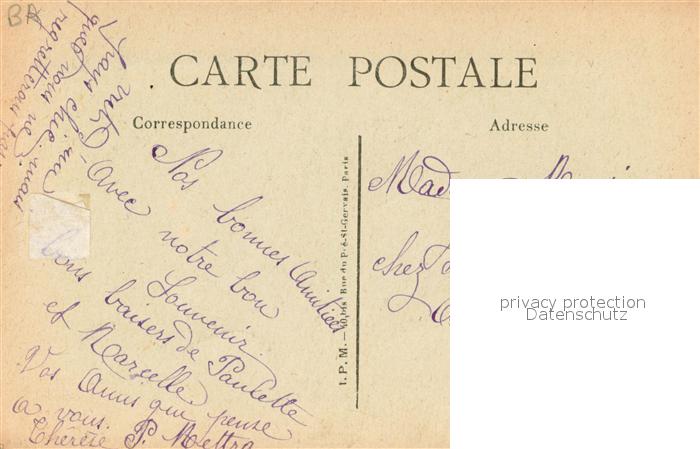 BA
CARTE POSTALE
Correspondance
Adresse
Nos bonnes Amitiées
Avec notre bon
Souvenir.
bons baisers de Paulette
et Marcelle
Vos Amis qui pense
a vous.
Thérèse P. Mettra
vous ne
regretterou
I. P. M. — 40, bis Rue du Pré-St-Gervais. Paris
Mad
chez
privacy protection
Datenschutz